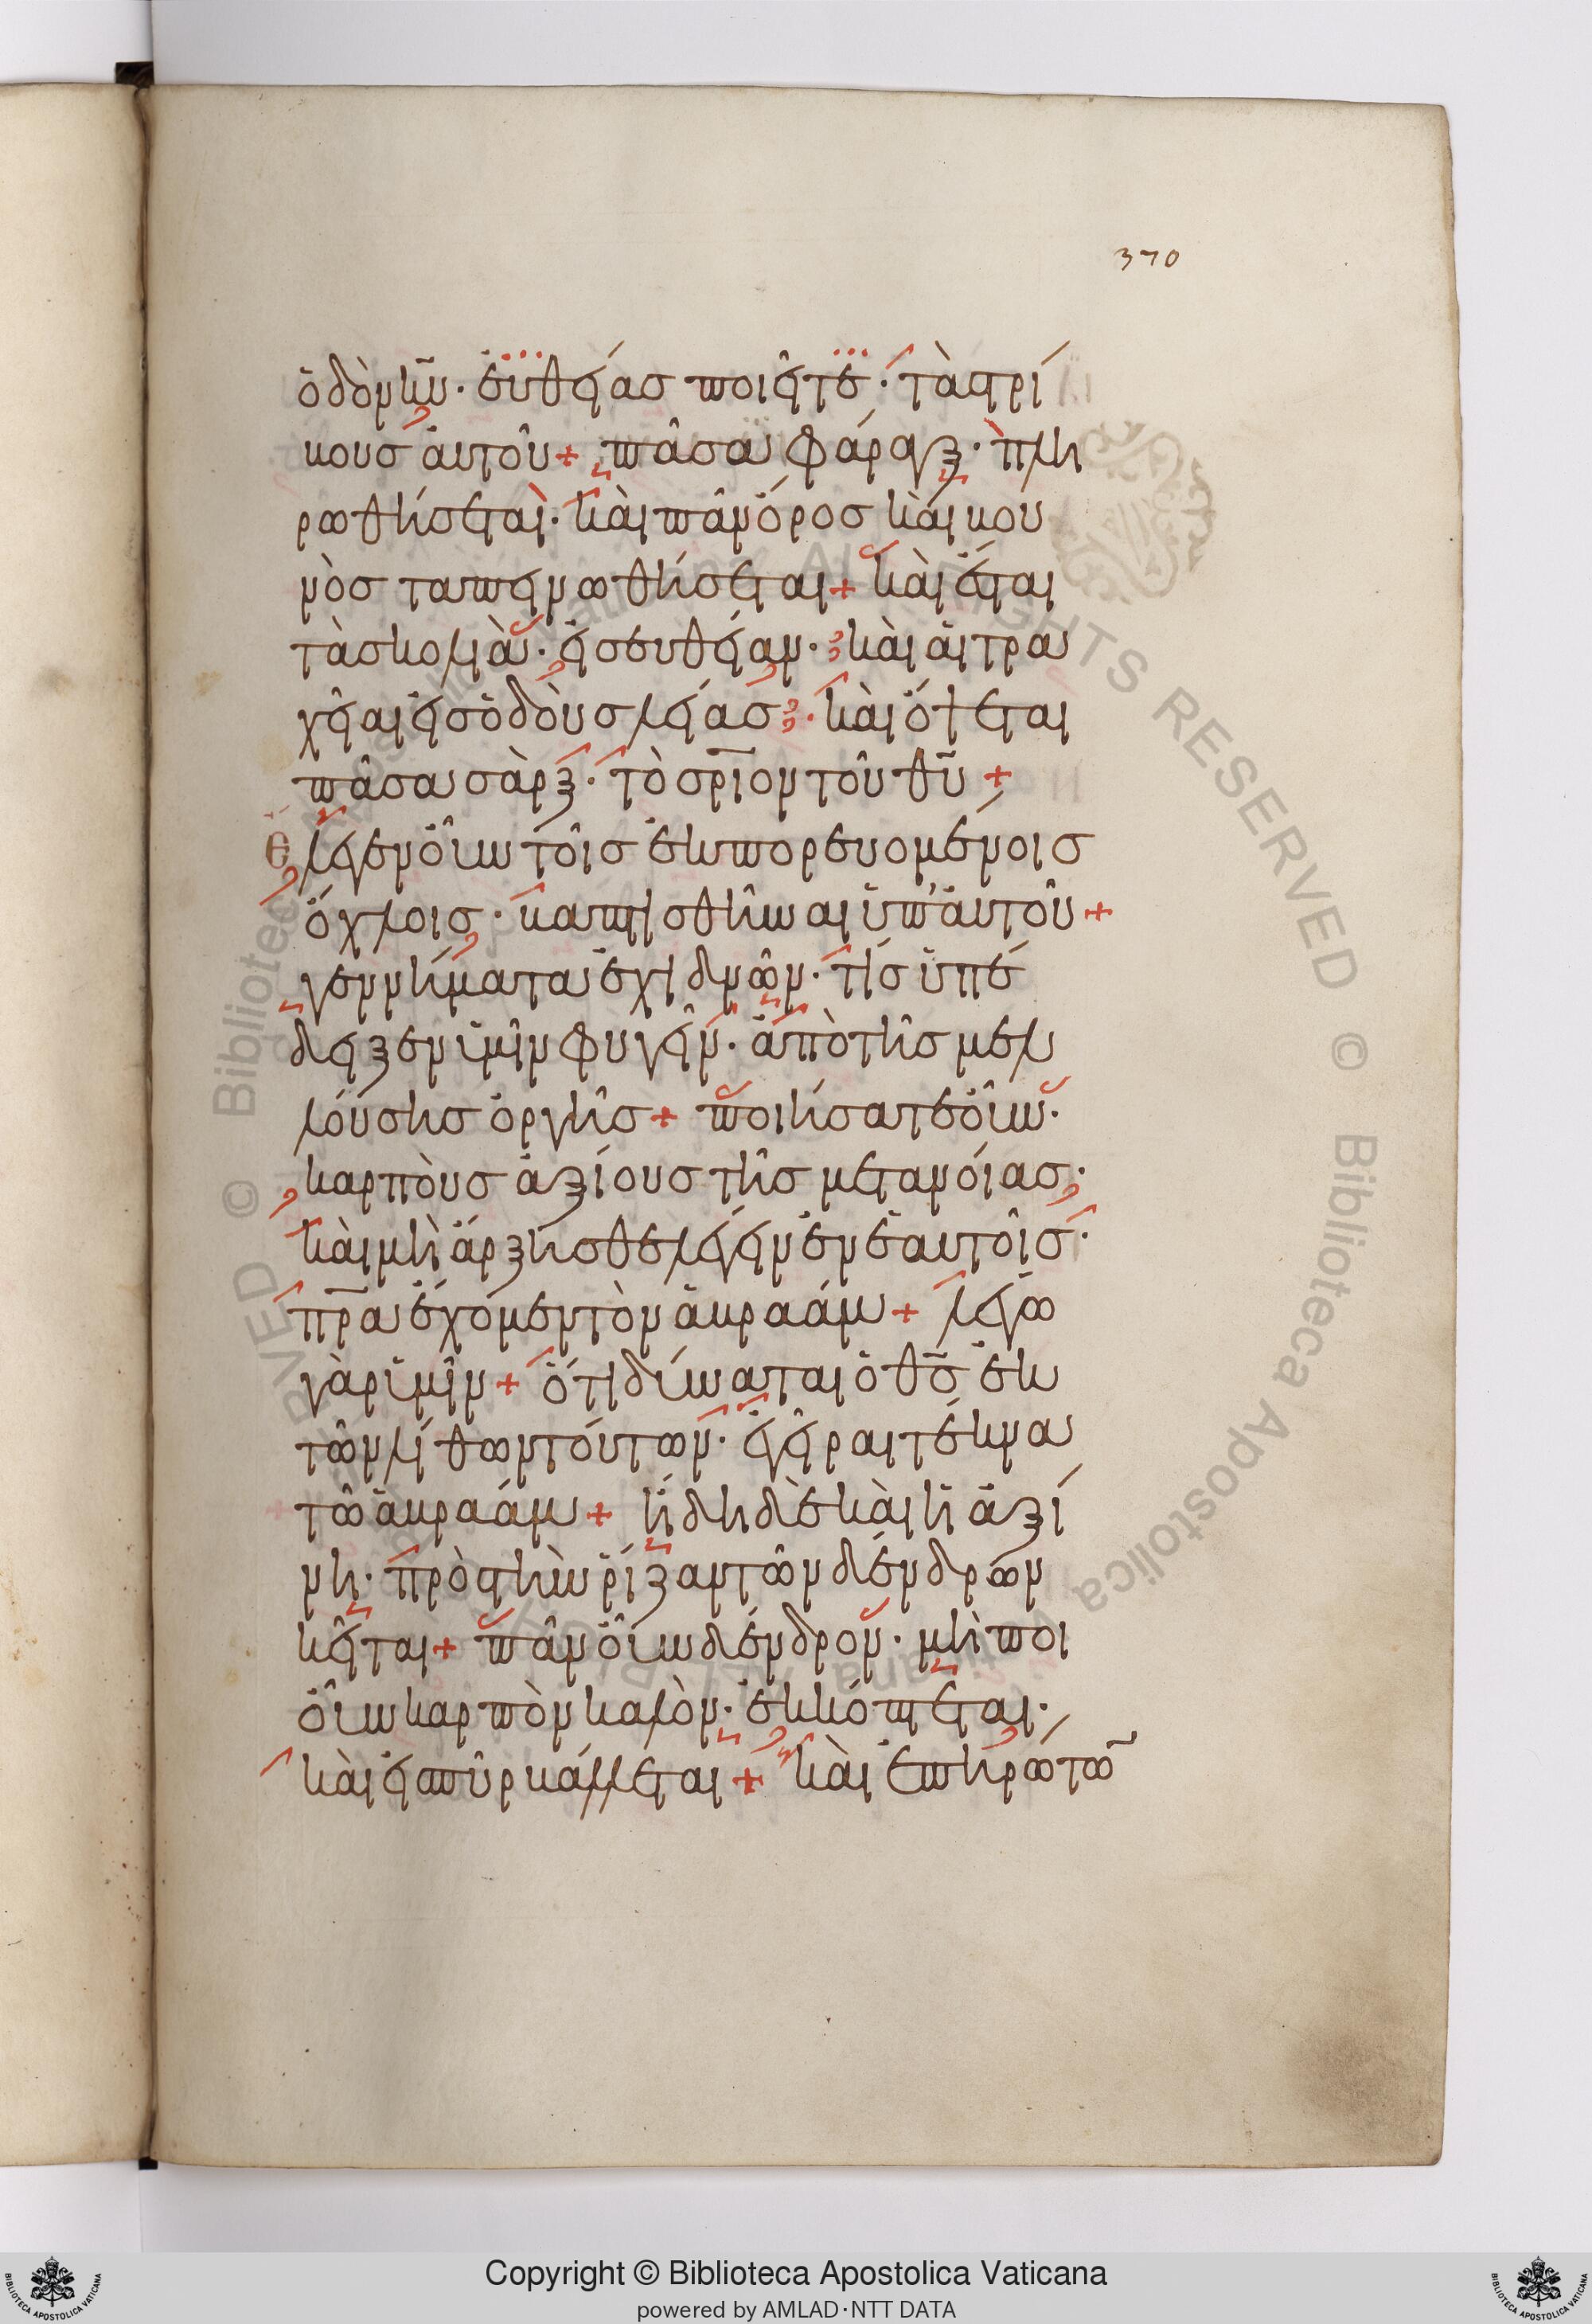 370
ὁδὸν κ̅υ̅· εὐθείας ποιεῖτε· τὰς τρί
βους αὐτοῦ + πᾶσα φάραγξ· πλη
ρωθήσεται· καὶ πᾶν ὄρος καὶ βου
νὸς ταπεινωθήσεται + καὶ ἔσται
τὰ σκολιὰ· εἰς εὐθείαν· καὶ αἱ τρα
χεῖαι εἰς ὁδοὺς λείας· καὶ ὄψεται
πᾶσα σὰρξ· τὸ σ̅ρ̅ιον τοῦ θ̅υ̅ +
ἔλεγεν οὖν τοῖς ἐκπορευομένοις
ὄχλοις· βαπτισθῆναι ὑπ' αὐτοῦ +
γεννήματα ἐχιδνῶν· τίς ὑπέ
δειξεν ὑμῖν φυγεῖν· ἀπὸ τῆς μελ
λούσης ὀργῆς + ποιήσατε οὖν·
καρποὺς ἀξίους τῆς μετανοίας·
καὶ μὴ ἄρξησθε λέγειν ἐν ἑαυτοῖς·
π̅ρ̅α ἔχομεν τὸν ἀβραάμ + λέγω
γὰρ ὑμῖν + ὅτι δύναται ὁ θ̅ς̅ ἐκ
τῶν λίθων τούτων· ἐγεῖραι τέκνα
τῶ ἀβραάμ + ἤδη δὲ καὶ ἡ ἀξί
νη· πρὸς τὴν ῥίζαν τῶν δένδρων
κεῖται + πᾶν οὖν δένδρον· μὴ ποι
οῦν καρπὸν καλὸν· ἐκκόπτεται·
καὶ εἰς πῦρ βάλλεται + καὶ ἐπηρώτω
Copyright © Biblioteca Apostolica Vaticana
powered by AMLAD·NTT DATA